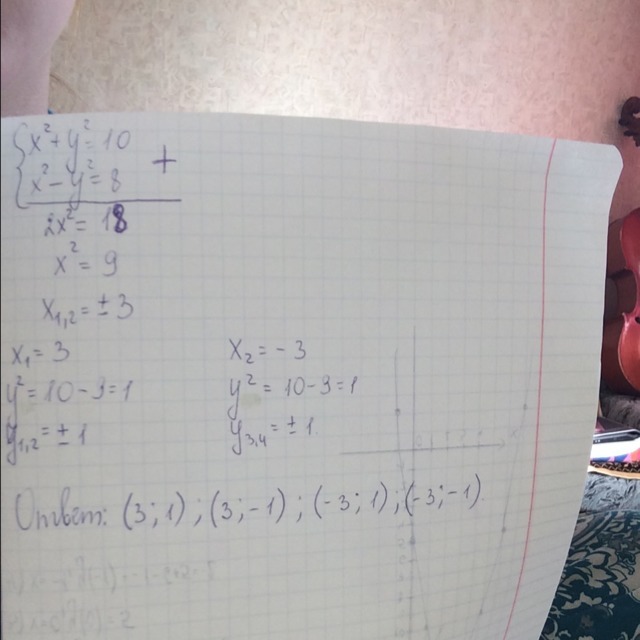 {x²+y²=10
x²-y²=8 +
2x²=18
x²=9
x₁,₂=±3
x₁=3 x₂=-3
y²=10-9=1 y²=10-9=1
y₁,₂=±1 y₃,₄=±1
Ответ: (3;1);(3;-1);(-3;1);(-3;-1).